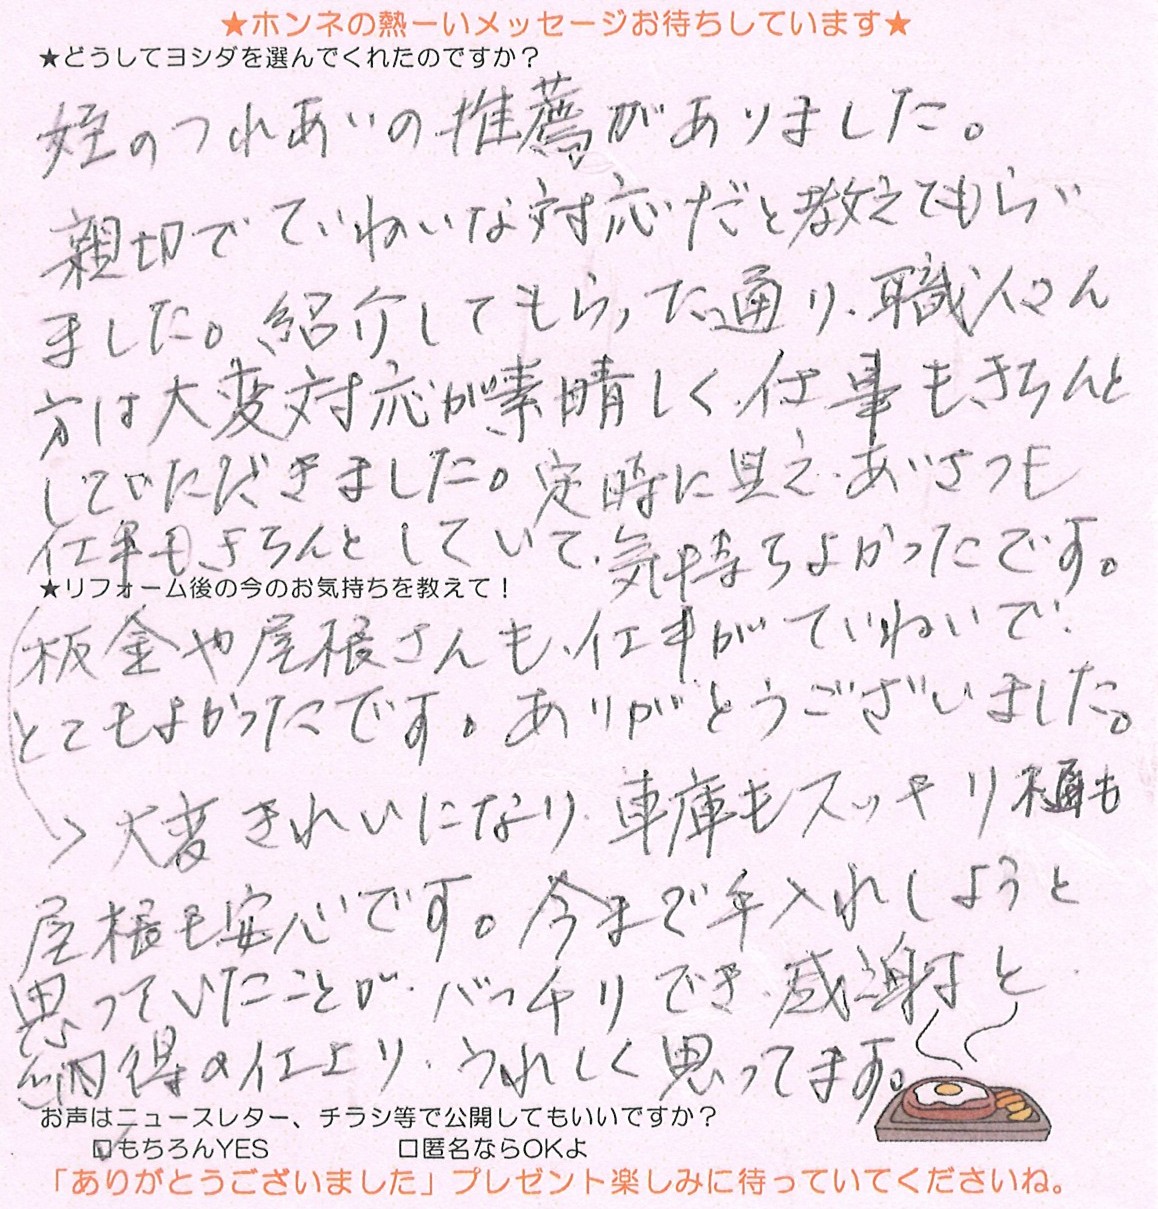 ★ホンネの熱ーいメッセージお待ちしています★
★どうしてヨシダを選んでくれたのですか？
姪のつれあいの推薦がありました。
親切でていねいな対応だと教えてもらい
ました。紹介してもらった通り、職人さん
方は大変対応が素晴しく、仕事もきちんと
していただきました。定時に見え、あいさつも
仕事もきちんとしていて、気持ちよかったです。
★リフォーム後の今のお気持ちを教えて！
板金や屋根さんも、仕事がていねいで、
とてもよかったです。ありがとうございました。
大変きれいになり、車庫もスッキリ樋も
屋根も安心です。今まで手入れしようと
思っていたことが、バッチリでき、感謝と
納得の仕上り、うれしく思ってます。
お声はニュースレター、チラシ等で公開してもいいですか？
☑もちろんYES　□匿名ならOKよ
「ありがとうございました」プレゼント楽しみに待っていてくださいね。